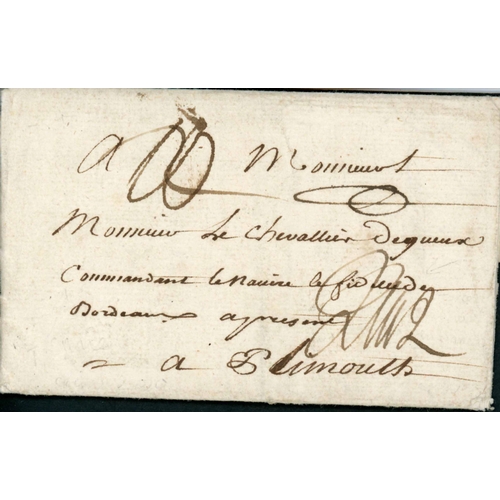 A Monsieur
Monsieur Le Chevallier Dequeux
Commandant le Navire le de
Bordeaux apresent
a Plimouth